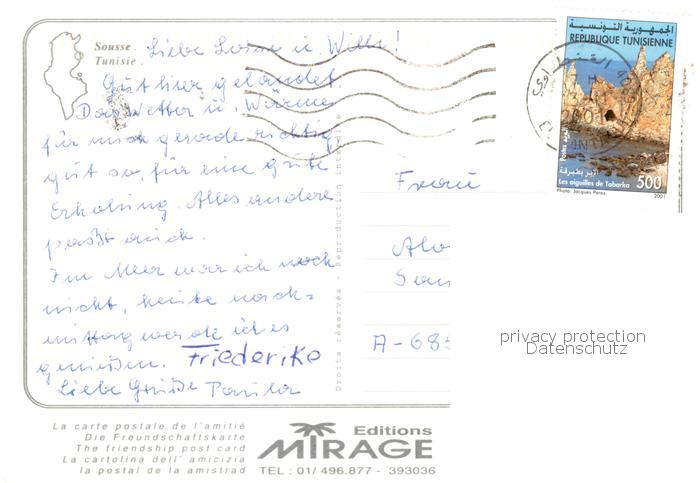 Sousse.
Tunisie.
Liebe Luise u. Willi!
Gut hier gelandet.
Das Wetter u. Wärme
für mich gerade richtig
gut so, für eine gute
Erholung. Alles andere
paßt auch.
Im Meer war ich noch
nicht, heute nach-
mittag werde ich es
genießen. Friederike
Liebe Grüße Paula
Droits réservés - Reproduction interdite
الجمهورية التونسية
REPUBLIQUE TUNISIENNE
Les aiguilles de Tabarka 500
Photo: Jacques Perez 2001
Frau
A-685
privacy protection
Datenschutz
La carte postale de l'amitié
Die Freundschaftskarte
The friendship post card
La cartolina dell' amicizia
la postal de la amistrad
Editions
MIRAGE
TEL : 01/ 496.877 - 393036